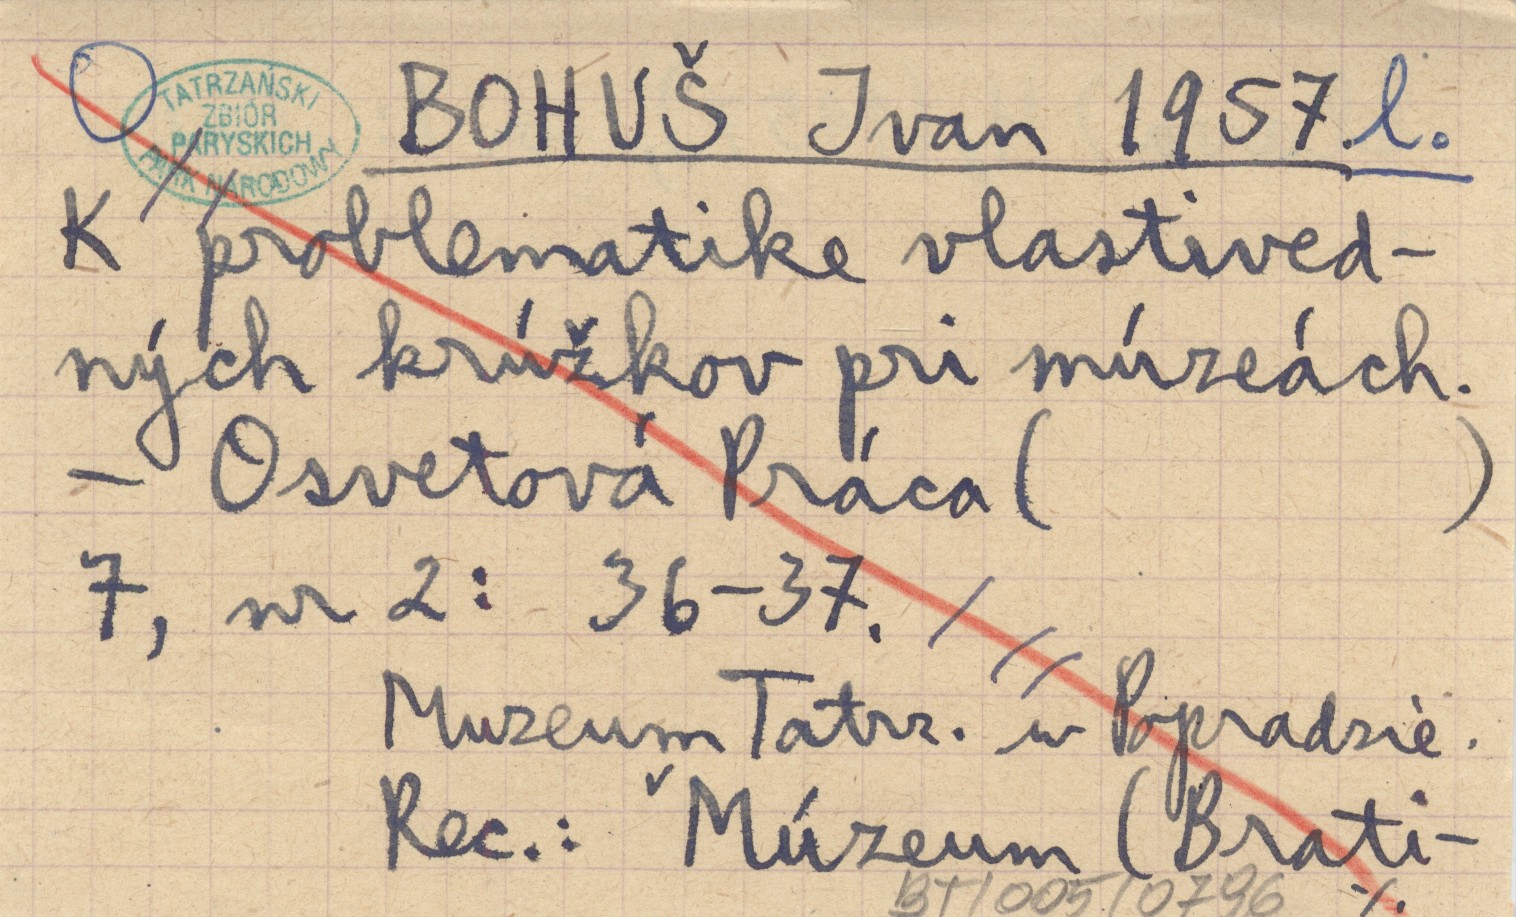 TATRZAŃSKI
ZBIÓR
PARYSKICH
PARK NARODOWY
BOHUŠ Ivan 1957. l.
K problematike vlastived-
ných krúžkov pri múzeách.
- Osvetová Práca ( )
7, nr 2: 36-37.
Muzeum Tatrz. w Popradzie.
Rec.: Múzeum (Brati-
BT/005/0796 ./.